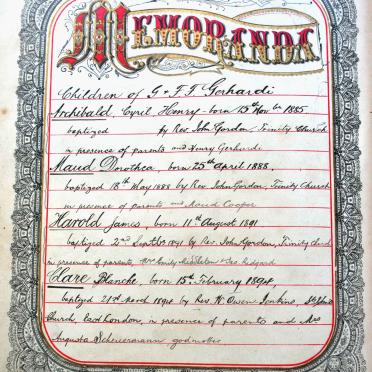 MEMORANDA
Children of G & F. F. Gerhardi
Archibald Cyril Henry - born 15th Nov br 1885
baptized by Rev John Gordon, Trinity Church
in presence of parents and Henry Gerhardi
Maud Dorothea, born 25th April 1888,
baptized 18th May 1888 by Rev John Gordon, Trinity Church
in presence of parents and Maud Cooper
Harold James born 11th August 1891
baptized 2nd Septbr 1891 by Rev. John Gordon, Trinity Church
in presence of parents, Mrs Emily Middleton & Geo Lidgard
Clare Blanche born 15th February 1894,
baptized 21st March 1894 by Rev W Owen Jenkins, St Johns
Church, East London, in presence of parents and Mrs
Augusta Scheuermann godmother